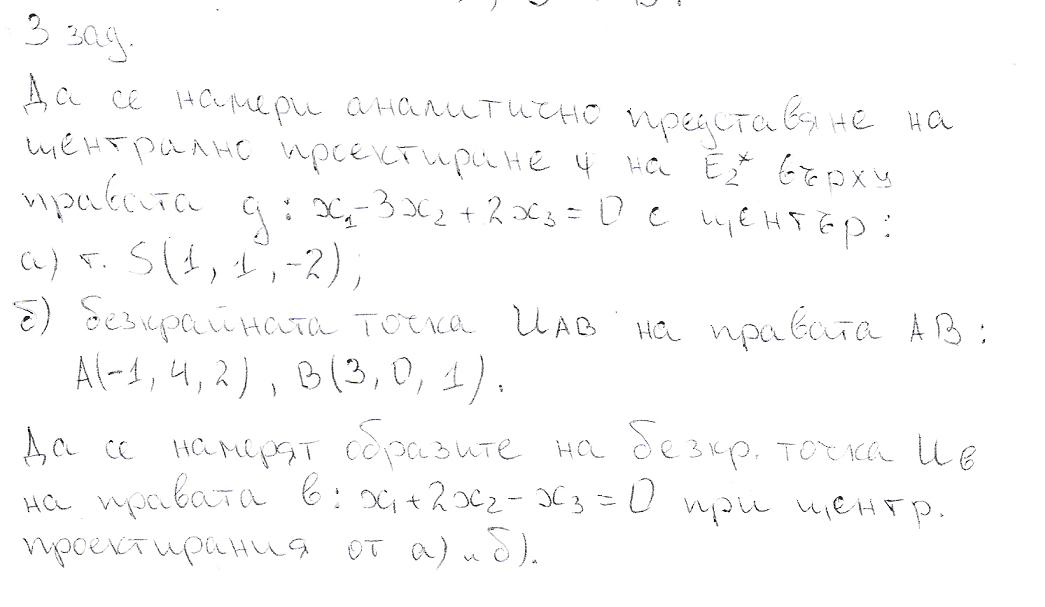 3 зад.
Да се намери аналитично представяне на
централно проектиране ψ на E₂* върху
правата g: x₁-3x₂+2x₃=0 с център:
а) т. S(1, 1, -2);
б) безкрайната точка U_AB на правата AB:
A(-1, 4, 2), B(3, 0, 1).
Да се намерят образите на безкр. точка U_b
на правата b: x₁+2x₂-x₃=0 при центр.
проектирания от а) и б).